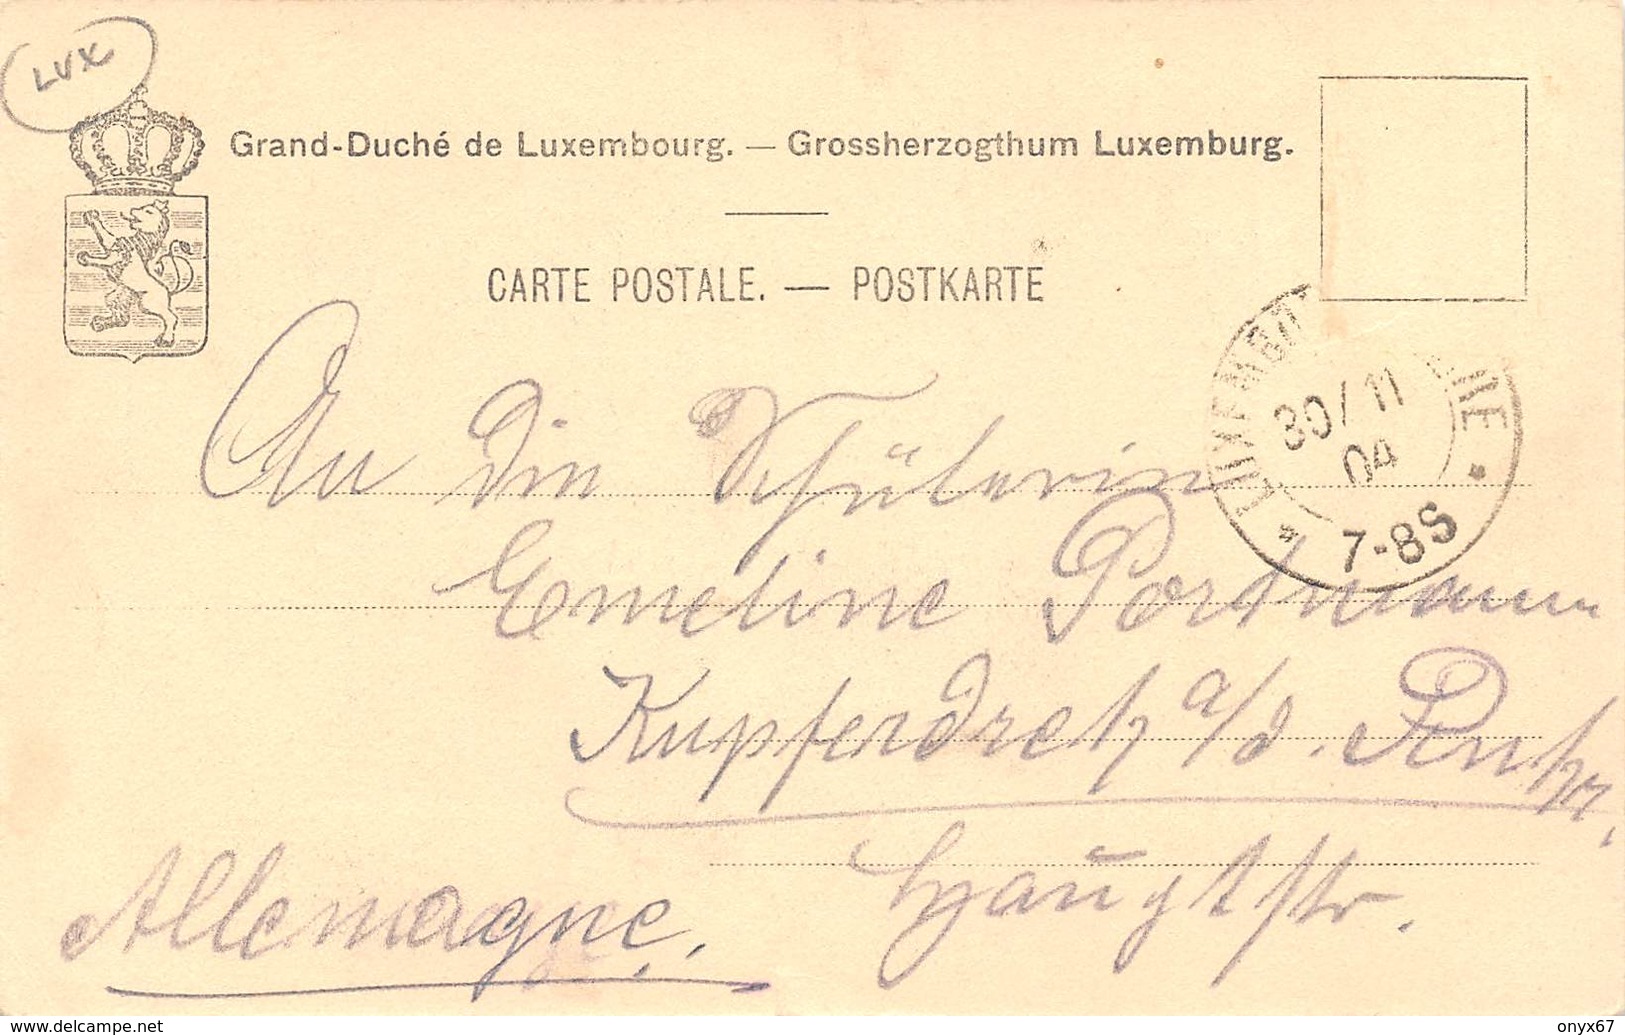 LUX
Grand-Duché de Luxembourg. — Grossherzogthum Luxemburg.
CARTE POSTALE. — POSTKARTE
30/11
04
7-8S
An die Schülerin
Emeline Portmann
Kupferdreh a/d. Ruhr,
Hauptstr.
Allemagne.
www.delcampe.net
onyx67